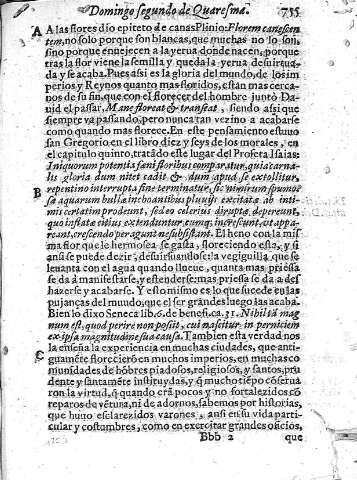 Domingo segundo de Quaresma. 755
A A las flores dio epiteto de canas Plinio: Florem canescen
tem, no solo porque son blancas, que muchas no lo son,
sino porque enuejecen a la yerua donde nacen, porque
tras la flor viene la semilla y queda la yerua desuirtua-
da y se acaba. Pues assi es la gloria del mundo, de los im
perios y Reynos quanto mas floridos, estan mas cerca-
nos de su fin, que con el florecer del hombre juntò Da-
uid el passar, Mane floreat & transeat, siendo assi que
siempre va passando, pero nunca tan vezino a acabarse
como quando mas florece. En este pensamiento estuuo
san Gregorio en el libro diez y seys de los morales, en
el capitulo quinto, tratãdo este lugar del Profeta Isaias:
Iniquorum potentia fani floribus comparatur, quia carna-
lis gloria dum nitet cadit & dum apud se extollitur,
B repentino interrupta fine terminatur, sic nimirum spumo-
sæ aquarum bullæ inchoantibus pluuijs excitatæ ab inti-
mis certatim prodeunt, sed eo celerius diruptæ depereunt,
quo instatæ citius extenduntur cumq; increscunt, vt appa-
reant, crescendo peragunt ne subsistant. El heno con la mis
ma flor que le hermosea se gasta, floreciendo esta, y si
ansi se puede dezir, desuirtuandose: la vegiguilla que se
leuanta con el agua quando llueue, quanta mas priessa
se da à manifestarse, y estenderse, mas priessa se da a des
hazerse y acabarse. Y esso mismo es lo que sucede en las
pujanças del mundo, que el ser grandes luego las acaba.
Bien lo dixo Seneca lib. 6. de benefi. ca. 31. Nihil tã mag
num est, quod perire non possit, cui nascitur in perniciem
ex ipsa magnitudine sua causa. Tambien esta verdad nos
la enseña la experiencia en muchas ciudades, que anti-
C guamẽte florecierõ en muchos imperios, en muchas co
munidades de hõbres piadosos, religiosos, y santos, pru
dente y santamẽte instituydas, y q̃ mucho tiẽpo cõserua
ron la virtud, q̃ quando erã pocos y no fortalezidos cõ
reparos de vẽtura, ni de adornos, sabemos por historias,
que huuo esclarezidos varones, ansi en su vida parti-
cular y costumbres, como en exercitar grandes oficios,
Bbb 2 que